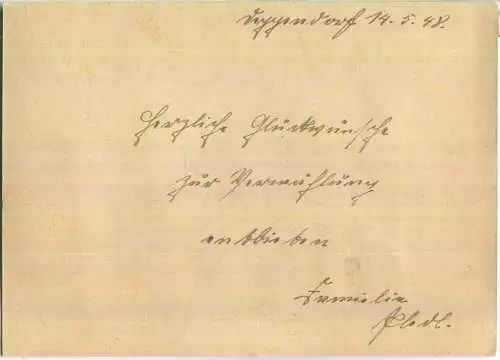 Deppendorf 14.5.48.
Herzliche Glückwünsche
zur Vermählung
entbieten
Familie